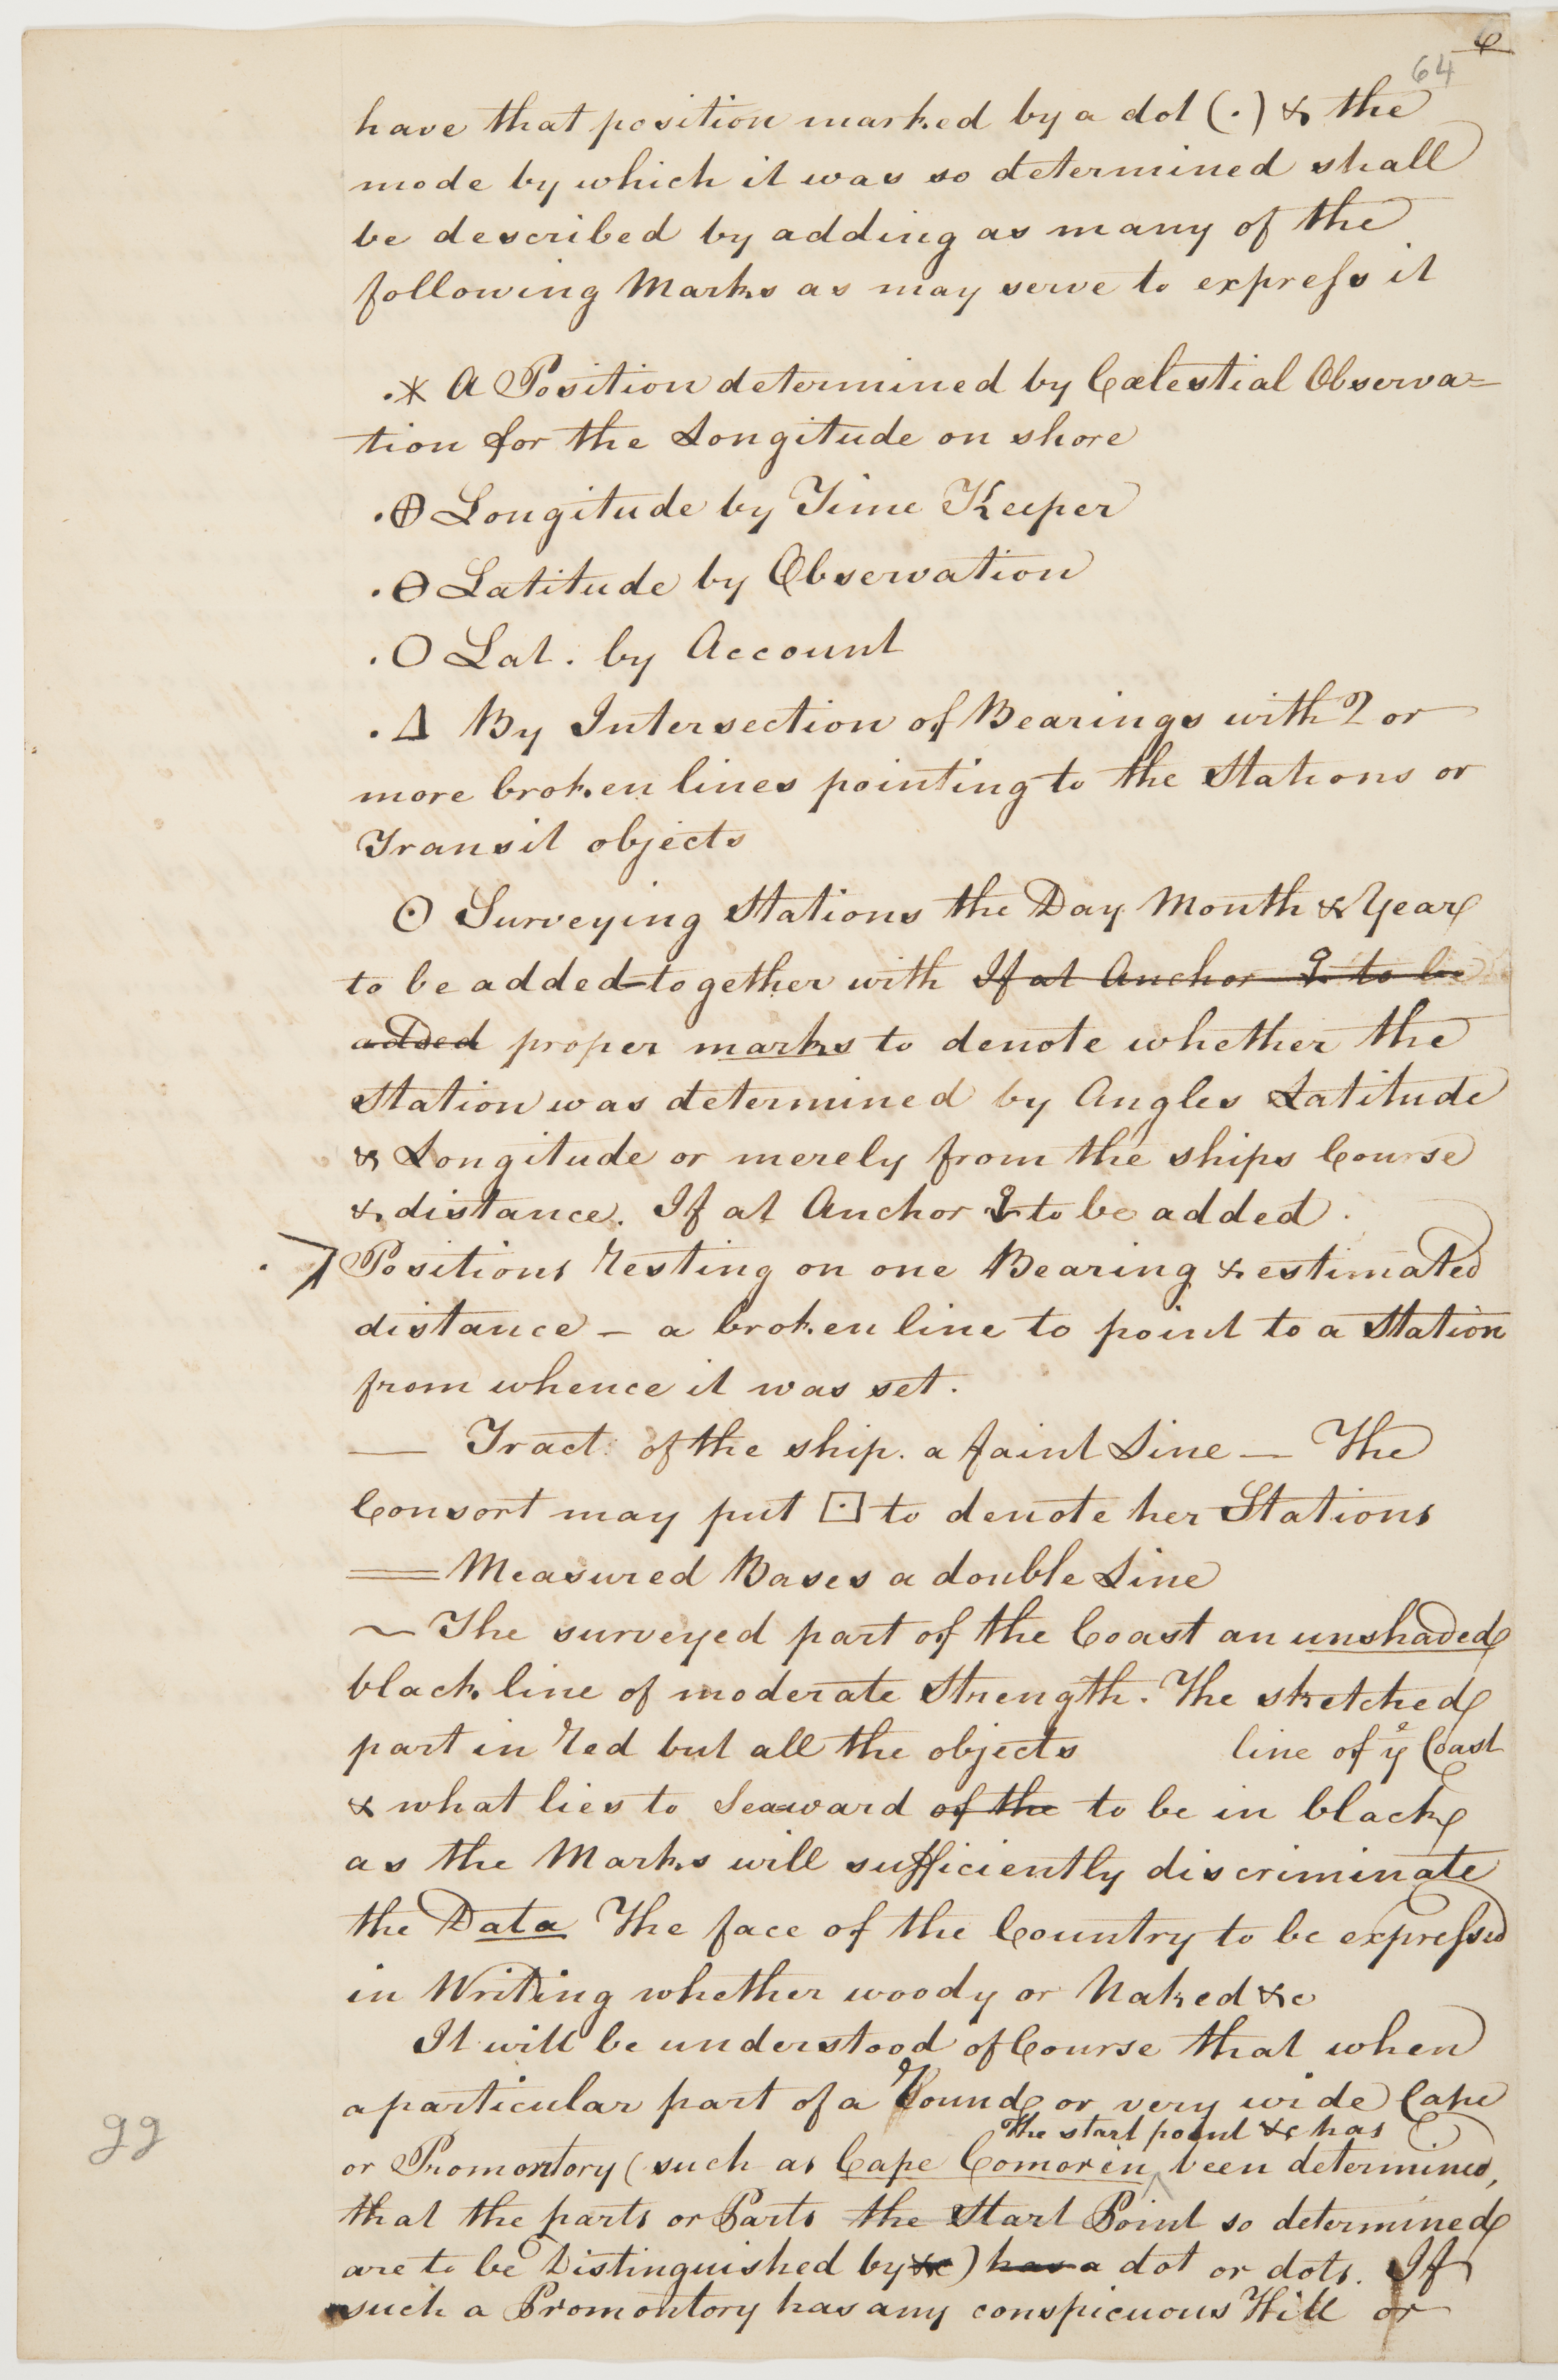 6
64
have that position marked by a dot (.) & the
mode by which it was so determined shall
be described by adding as many of the
following Marks as may serve to expreſs it
.* A Position determined by Cælestial Observa=
tion for the Longitude on shore
.⊕ Longitude by Time Keeper
.⊖ Latitude by Observation
.O Lat. by Account
.Δ By Intersection of Bearings with 2 or
more broken lines pointing to the Stations or
Transit objects
⊙ Surveying Stations the Day Month & Year
to be added together with If at Anchor to be
added proper marks to denote whether the
Station was determined by Angles Latitude
& Longitude or merely from the ships Course
& distance. If at Anchor to be added.
Positions resting on one Bearing & estimated
distance – a broken line to point to a Station
from whence it was set.
— Tract: of the ship. a faint Line — The
Consort may put ⊡ to denote her Stations
= Measured Bases a double Line
~ The surveyed part of the Coast an unshaded
black line of moderate Strength. The sketched
part in red but all the objects line of yᵉ Coast
& what lies to Seaward of the to be in black
as the Marks will sufficiently discriminate
the Data The face of the Country to be expreſsed
in Writing whether woody or Naked &c
It will be understood of Course that when
a particular part of a Round or very wide Cape
The start point &c has
or Promontory (such as Cape Comorin ^ been determined,
that the parts or Parts the Start Point so determined
are to be Distinguished by &c) has a dot or dots. If
such a Promontory has any conspicuous Hill or
gg